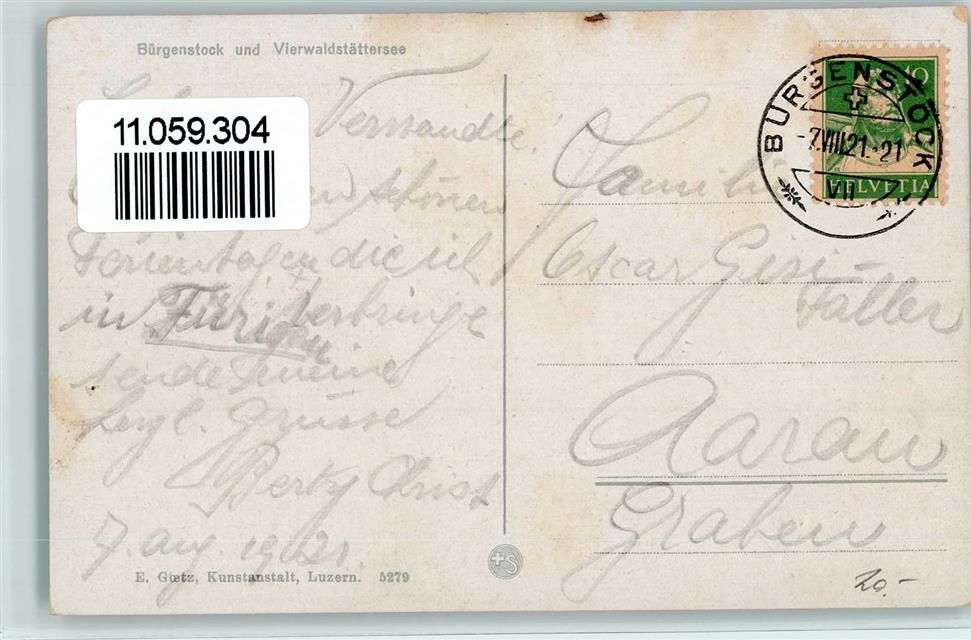 Bürgenstock und Vierwaldstättersee
11.059.304
Verwandte!
schönen
Ferientagen die ich
in Fürigen verbringe
sende meine
herzl. Grüsse
Berty Christ
7. Aug. 1921.
E. Gœtz, Kunstanstalt, Luzern. 5279
+S
BÜRGENSTOCK
-7.VIII.21.-21
VII
10
HELVETIA
Familie
Oscar Gysi-
Faller
Aarau
Graben
20.-